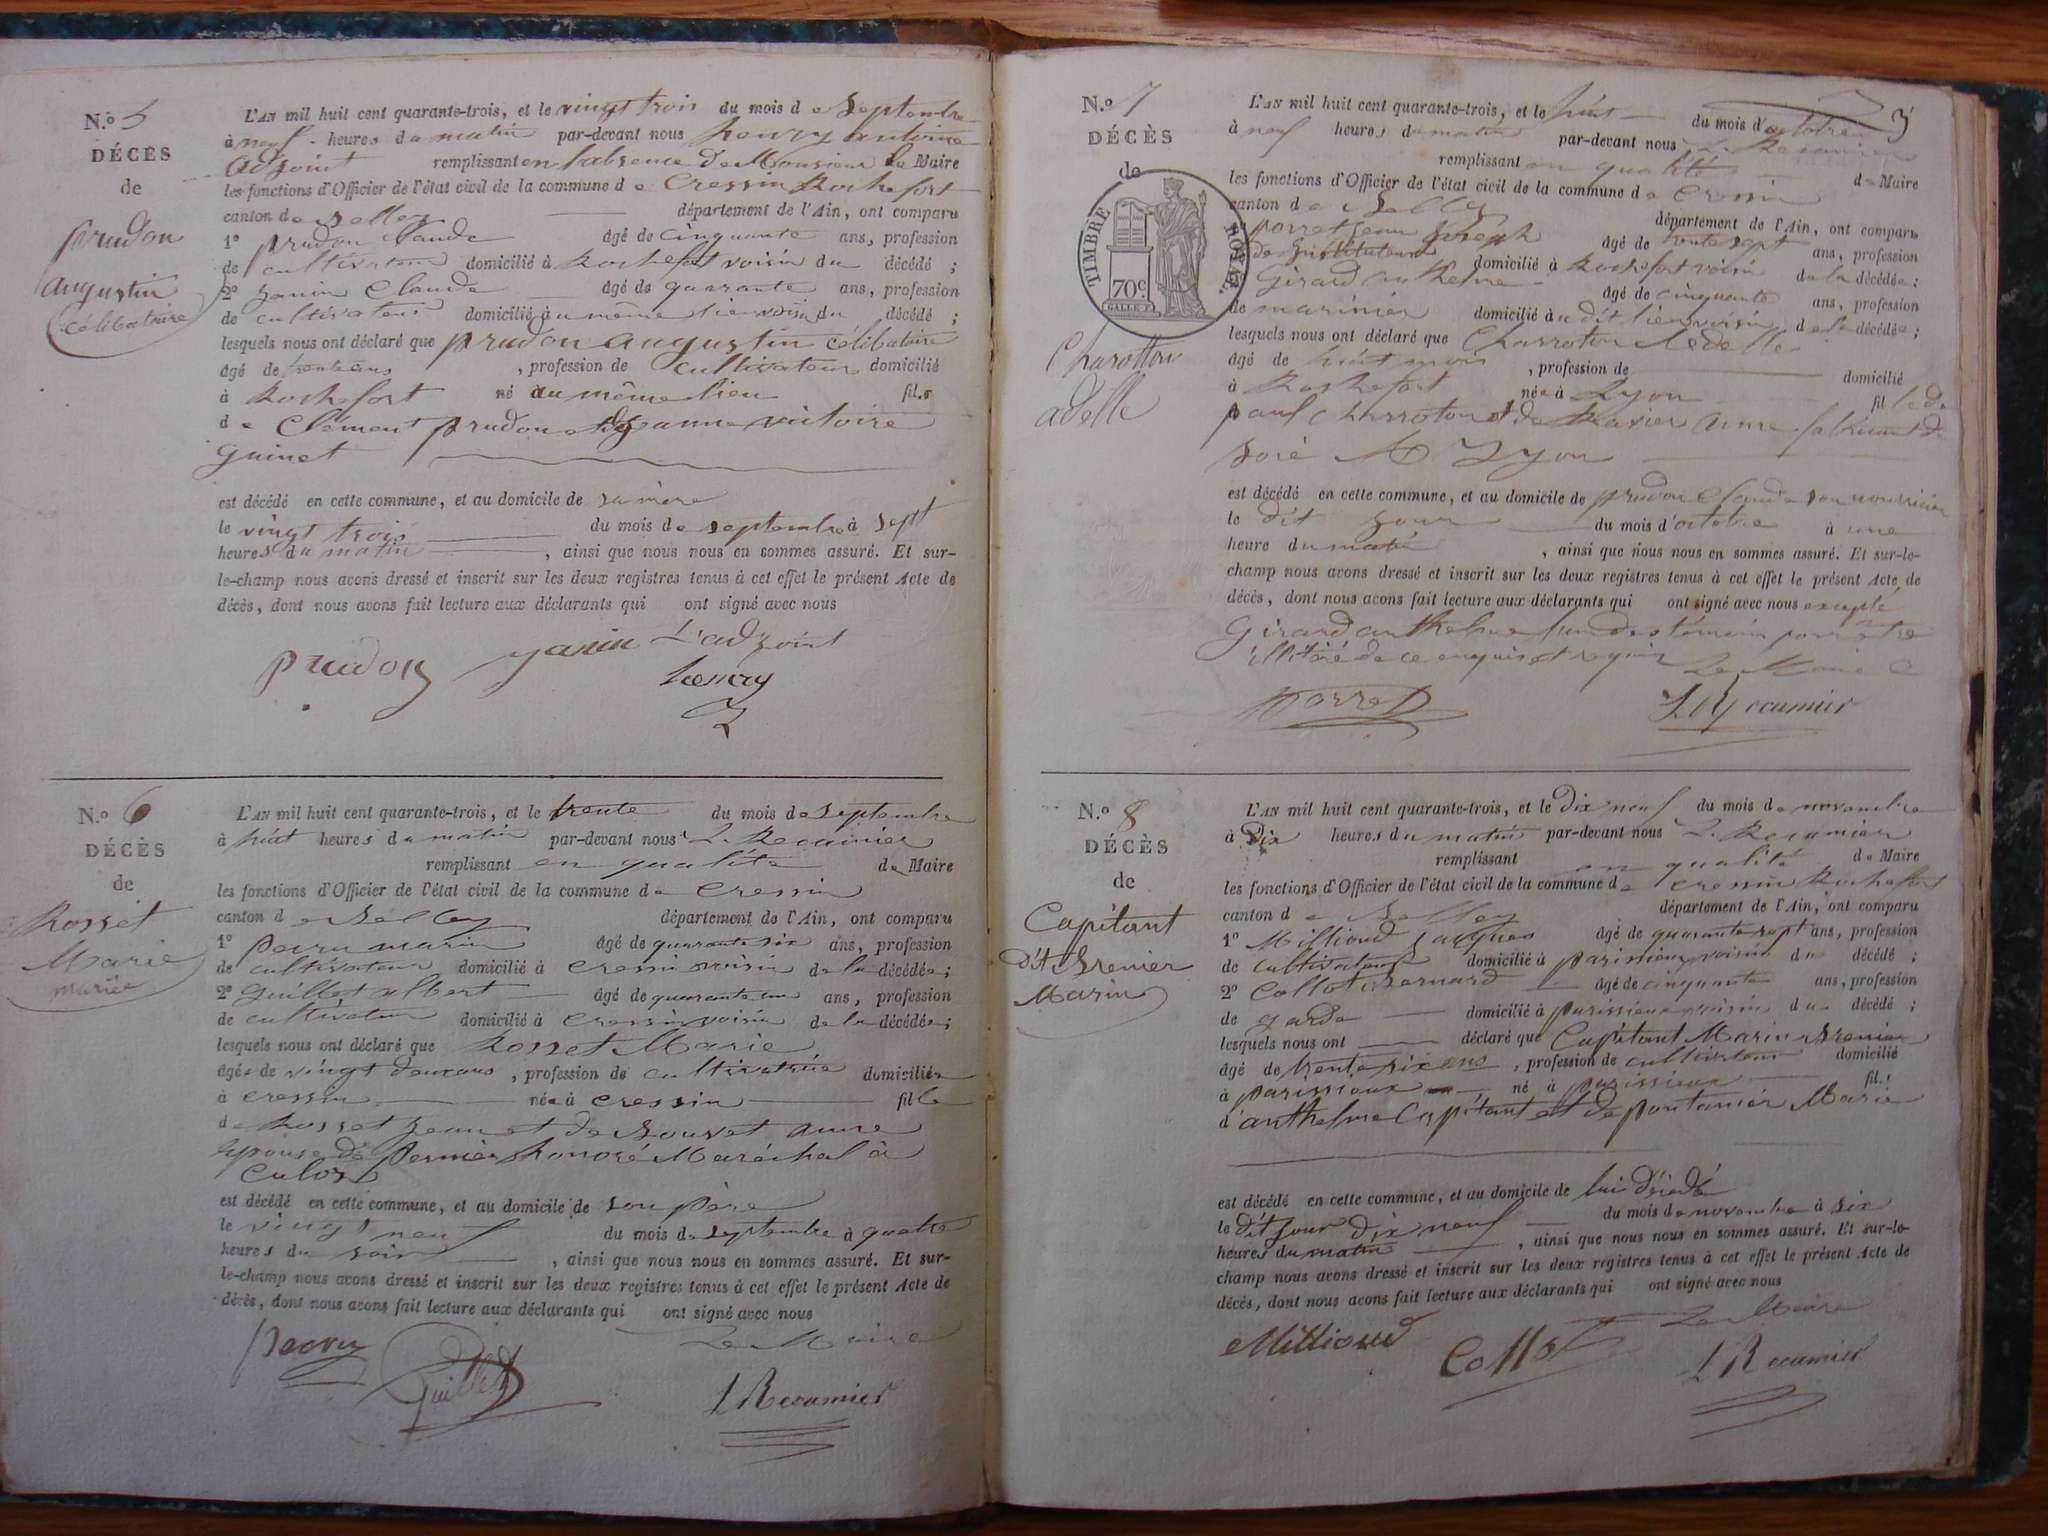 N.º 5
DÉCÈS
de
prudon
augustin
célibataire
L'AN mil huit cent quarante-trois, et le vingt trois du mois de Septembre
à neuf heures du matin par-devant nous henry antoine
adjoint remplissant en l'absence de Monsieur le Maire
les fonctions d'Officier de l'état civil de la commune de Cressin Rochefort
canton de Belley département de l'Ain, ont comparu
1º prudon Claude âgé de cinquante ans, profession
de cultivateur domicilié à Rochefort voisin du décédé ;
2º Janin Claude âgé de quarante ans, profession
de cultivateur domicilié au même lieu voisin du décédé ;
lesquels nous ont déclaré que prudon augustin célibataire
âgé de trente ans , profession de cultivateur domicilié
à Rochefort né au même lieu fils
de Clément prudon et de jeanne victoire
guinet
est décédé en cette commune, et au domicile de sa mère
le vingt trois du mois de septembre à sept
heures du matin , ainsi que nous nous en sommes assuré. Et sur-
le-champ nous avons dressé et inscrit sur les deux registres tenus à cet effet le présent Acte de
décès, dont nous avons fait lecture aux déclarants qui ont signé avec nous
prudon janin L'adjoint
henry
N.º 6
DÉCÈS
de
Rosset
Marie
mariée
L'AN mil huit cent quarante-trois, et le trente du mois de septembre
à huit heures du matin par-devant nous L. Recamier
remplissant en qualité de Maire
les fonctions d'Officier de l'état civil de la commune de Cressin
canton de Belley département de l'Ain, ont comparu
1º marin âgé de quarante six ans, profession
de cultivateur domicilié à cressin voisin de la décédée ;
2º Guillet albert âgé de quarante un ans, profession
de cultivateur domicilié à cressin voisin de la décédée ;
lesquels nous ont déclaré que Rosset Marie
âgée de vingt deux ans , profession de cultivatrice domiciliée
à cressin née à cressin fille
de Rosset jean et de Bouvet anne
épouse de Pernier honoré Maréchal à
Culoz
est décédé en cette commune, et au domicile de son père
le vingt neuf du mois de septembre à quatre
heures du soir , ainsi que nous nous en sommes assuré. Et sur-
le-champ nous avons dressé et inscrit sur les deux registres tenus à cet effet le présent Acte de
décès, dont nous avons fait lecture aux déclarants qui ont signé avec nous
Guillet Le Maire
L Recamier
N.º 7
DÉCÈS
de
TIMBRE ROYAL.
70 c.
Charotton
adelle
3
L'AN mil huit cent quarante-trois, et le huit du mois d'octobre
à neuf heures du matin par-devant nous L. Recamier
remplissant en qualité de Maire
les fonctions d'Officier de l'état civil de la commune de Cressin
canton de Belley département de l'Ain, ont comparu
porret jean joseph âgé de trente sept ans, profession
de instituteur domicilié à Rochefort voisin de la décédée ;
Girard anthelme âgé de cinquante ans, profession
de marinier domicilié au dit lieu voisin de la décédée ;
lesquels nous ont déclaré que Charroton adelle
âgé de huit mois , profession de domicilié
à Rochefort née à Lyon fille de
paul Charroton et de Ravier anne fabricant de
soie à Lyon
est décédé en cette commune, et au domicile de prudon Claude son nourricier
le dit jour du mois d'octobre à une
heure du matin , ainsi que nous nous en sommes assuré. Et sur-le-
champ nous avons dressé et inscrit sur les deux registres tenus à cet effet le présent Acte de
décès, dont nous avons fait lecture aux déclarants qui ont signé avec nous excepté
Girard anthelme l'un des témoins pour être
illitéré de ce enquis et requis Le Maire
porret L Recamier
N.º 8
DÉCÈS
de
Capitant
dit Brenier
Marin
L'AN mil huit cent quarante-trois, et le dix neuf du mois de novembre
à Dix heures du matin par-devant nous L. Recamier
remplissant en qualité de Maire
les fonctions d'Officier de l'état civil de la commune de cressin Rochefort
canton de Belley département de l'Ain, ont comparu
1º Millioud jacques âgé de quarante sept ans, profession
de cultivateur domicilié à parissieux voisin du décédé ;
2º Collot bernard âgé de cinquante ans, profession
de garde domicilié à parissieux voisin du décédé ;
lesquels nous ont déclaré que Capitant Marin Brenier
âgé de trente six ans , profession de cultivateur domicilié
à parissieux né à parissieux fils
d'anthelme Capitant et de pontanier Marie
est décédé en cette commune, et au domicile de lui décédé
le dit jour dix neuf du mois de novembre à six
heures du matin , ainsi que nous nous en sommes assuré. Et sur-le-
champ nous avons dressé et inscrit sur les deux registres tenus à cet effet le présent Acte de
décès, dont nous avons fait lecture aux déclarants qui ont signé avec nous
Le Maire
Millioud Collot L Recamier